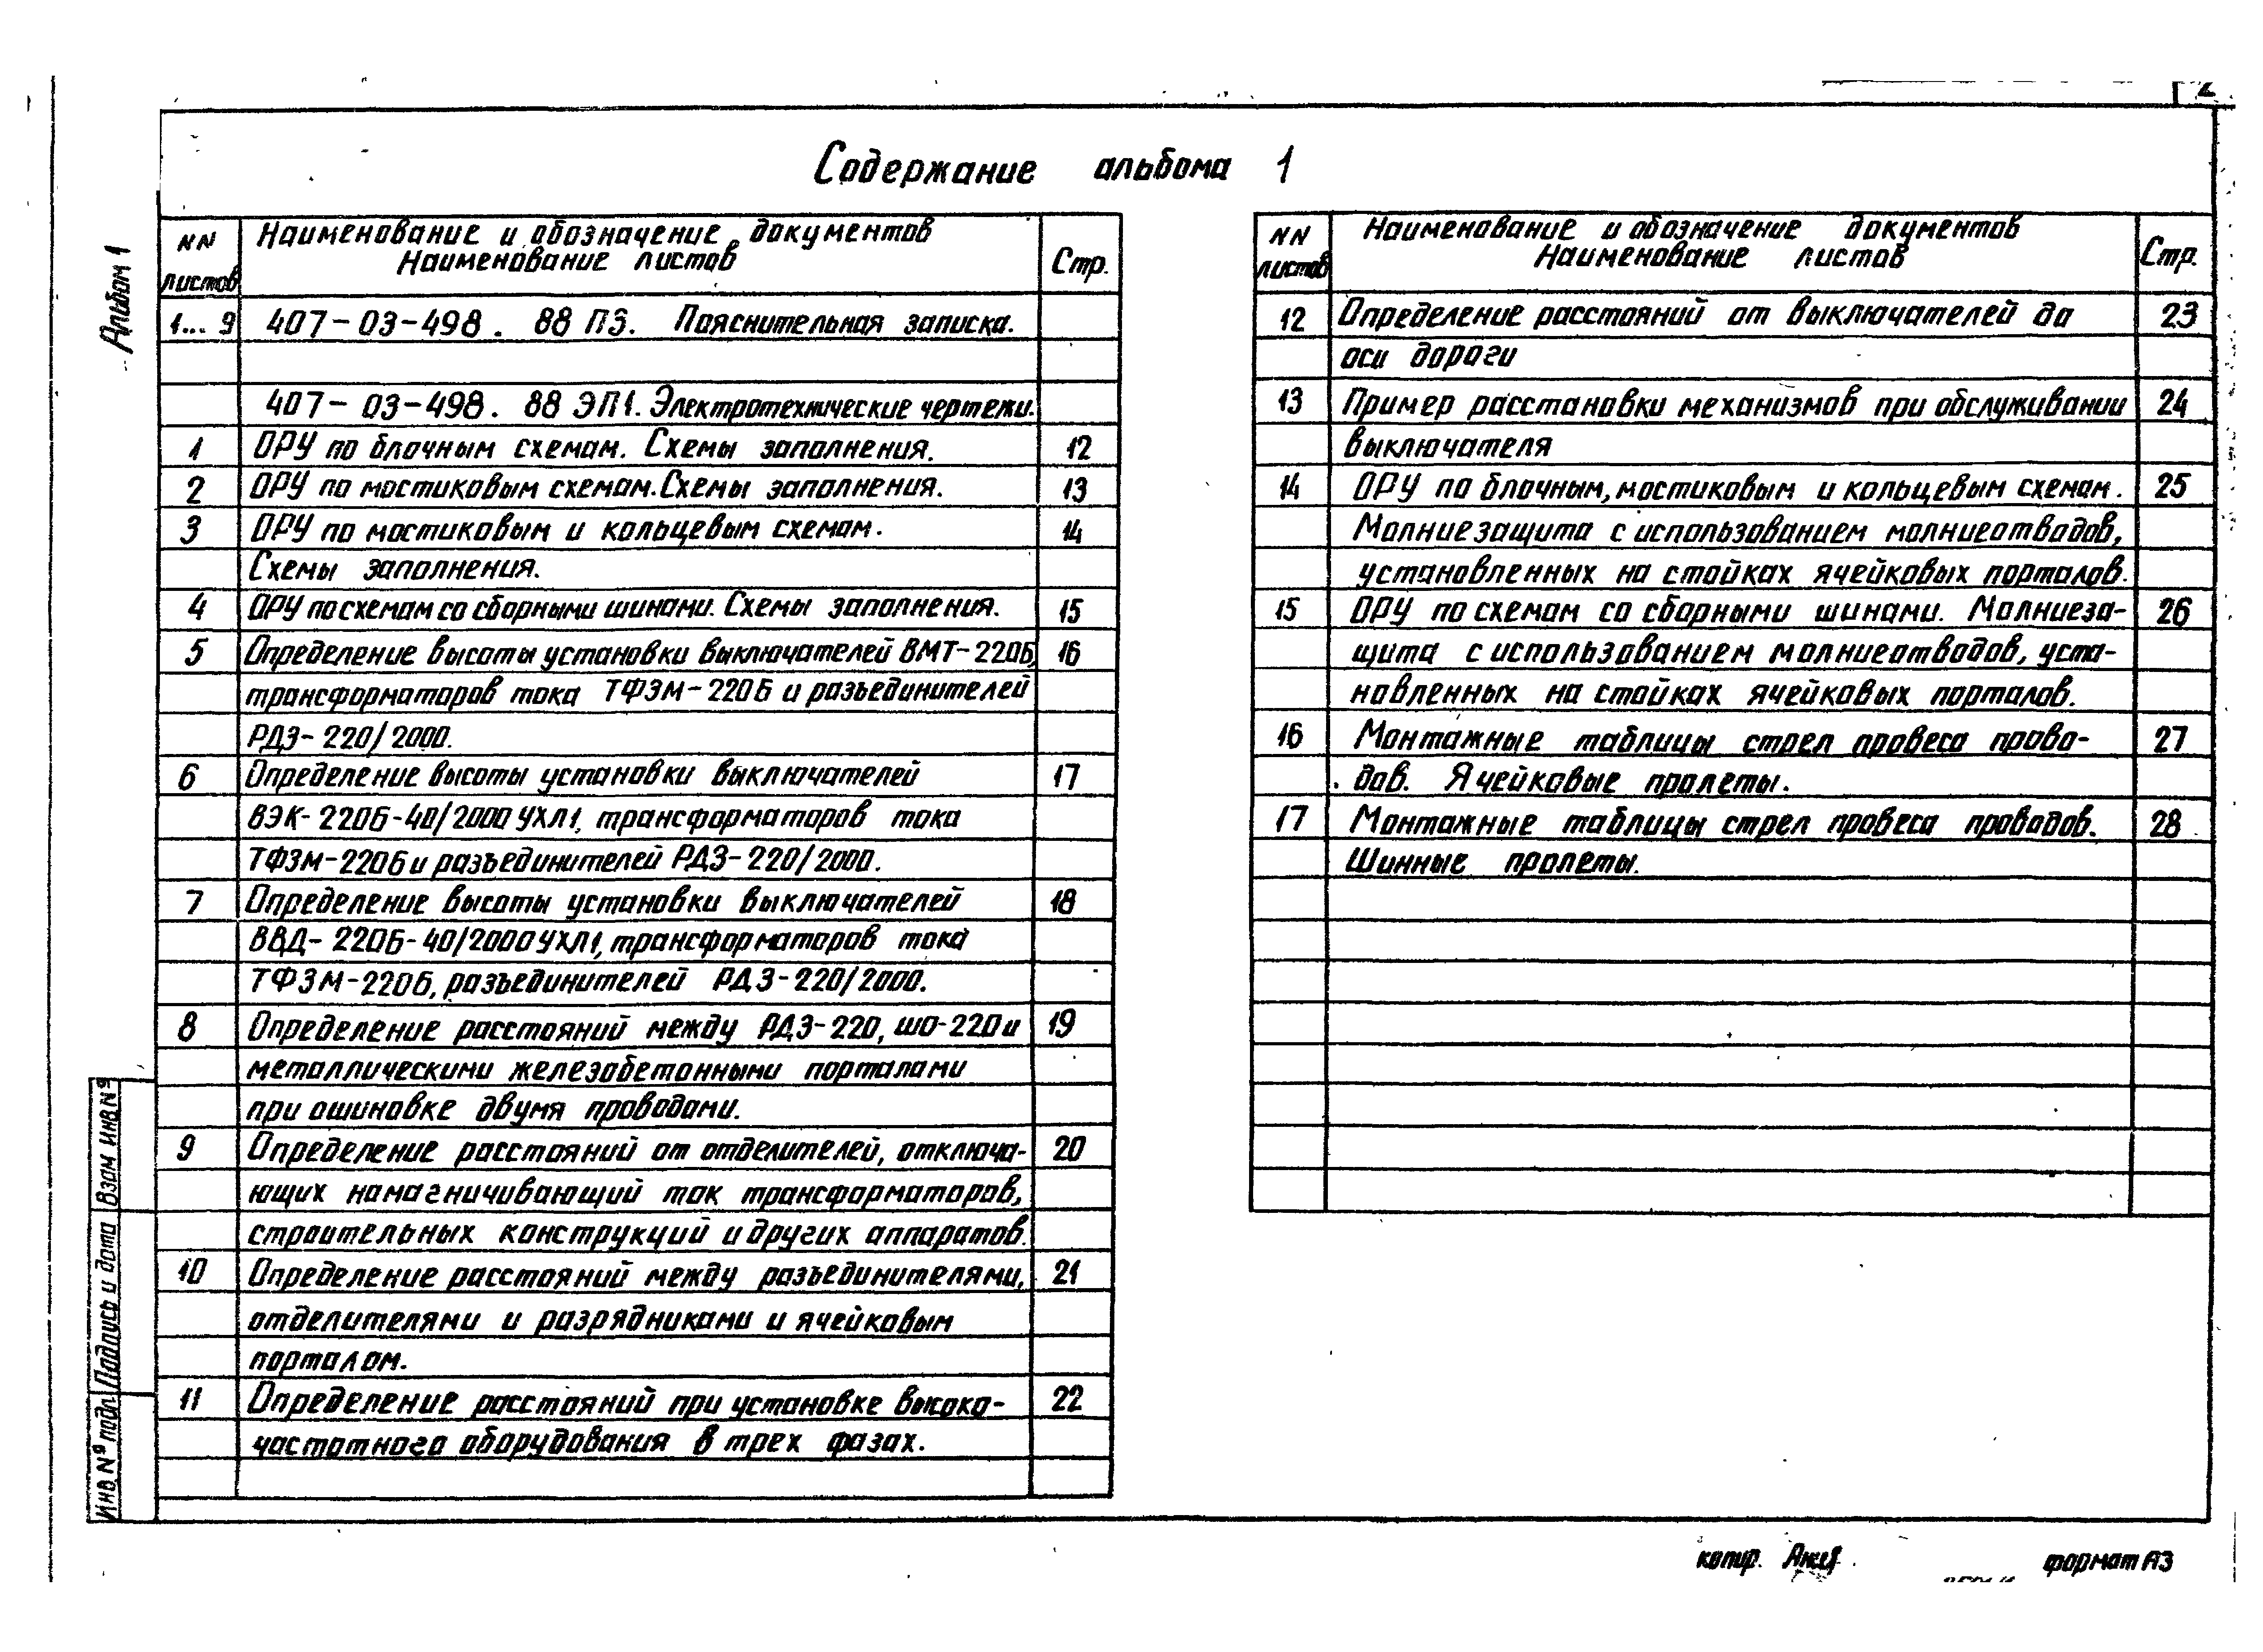 Содержание альбома 1
Альбом 1
NN
листов
Наименование и обозначение документов
Наименование листов
Стр.
1... 9 407-03-498. 88 ПЗ. Пояснительная записка.
407-03-498. 88 ЭП1. Электротехнические чертежи.
1 ОРУ по блочным схемам. Схемы заполнения. 12
2 ОРУ по мостиковым схемам. Схемы заполнения. 13
3 ОРУ по мостиковым и кольцевым схемам. 14
Схемы заполнения.
4 ОРУ по схемам со сборными шинами. Схемы заполнения. 15
5 Определение высоты установки выключателей ВМТ-220Б, 16
трансформаторов тока ТФЗМ-220Б и разъединителей
РДЗ-220/2000.
6 Определение высоты установки выключателей 17
ВЭК-220Б-40/2000 УХЛ1, трансформаторов тока
ТФЗМ-220Б и разъединителей РДЗ-220/2000.
7 Определение высоты установки выключателей 18
ВВД-220Б-40/2000 УХЛ1, трансформаторов тока
ТФЗМ-220Б, разъединителей РДЗ-220/2000.
8 Определение расстояний между РДЗ-220, ШО-220 и 19
металлическими железобетонными порталами
при ошиновке двумя проводами.
9 Определение расстояний от отделителей, отключа- 20
ющих намагничивающий ток трансформаторов,
строительных конструкций и других аппаратов.
10 Определение расстояний между разъединителями, 21
отделителями и разрядниками и ячейковым
порталом.
11 Определение расстояний при установке высоко- 22
частотного оборудования в трех фазах.
NN
листов
Наименование и обозначение документов
Наименование листов
Стр.
12 Определение расстояний от выключателей до 23
оси дороги
13 Пример расстановки механизмов при обслуживании 24
выключателя
14 ОРУ по блочным, мостиковым и кольцевым схемам. 25
Молниезащита с использованием молниеотводов,
установленных на стойках ячейковых порталов.
15 ОРУ по схемам со сборными шинами. Молниеза- 26
щита с использованием молниеотводов, уста-
новленных на стойках ячейковых порталов.
16 Монтажные таблицы стрел провеса прово- 27
дов. Ячейковые пролеты.
17 Монтажные таблицы стрел провеса проводов. 28
Шинные пролеты.
Взам инв №
Подпись и дата
Инв № подл.
копир.
формат А3